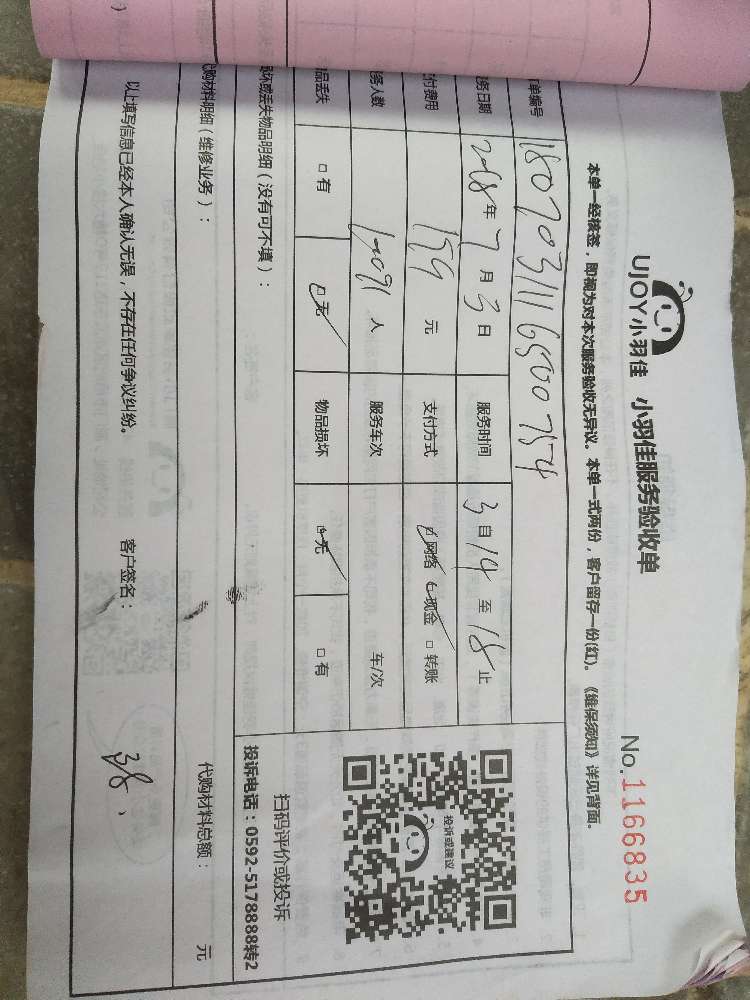 UJOY小羽佳 小羽佳服务验收单
No.1166835
本单一经核签，即视为对本次服务验收无异议。本单一式两份，客户留存一份(红)。《维保须知》详见背面。
单编号
务日期 2018年7月3日 服务时间 3日14至18止
付费用 159元 支付方式 网络 现金 转账
务人数 人 服务车次 车/次
品丢失 有 无 物品损坏 无 有
投诉或建议
扫码评价或投诉
投诉电话：0592-5178888转2
坏或丢失物品明细（没有可不填）：
代购材料明细（维修业务）： 代购材料总额： 元
以上填写信息已经本人确认无误，不存在任何争议纠纷。 客户签名：